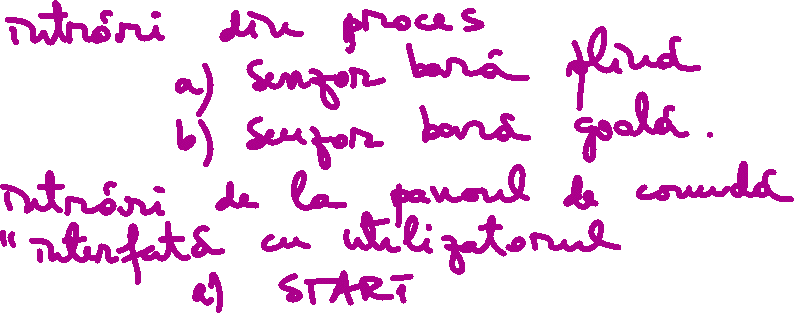 intrări din proces
a) Senzor bară plină
b) Senzor bară goală.
intrări de la panoul de comandă
"interfață cu utilizatorul
a) START